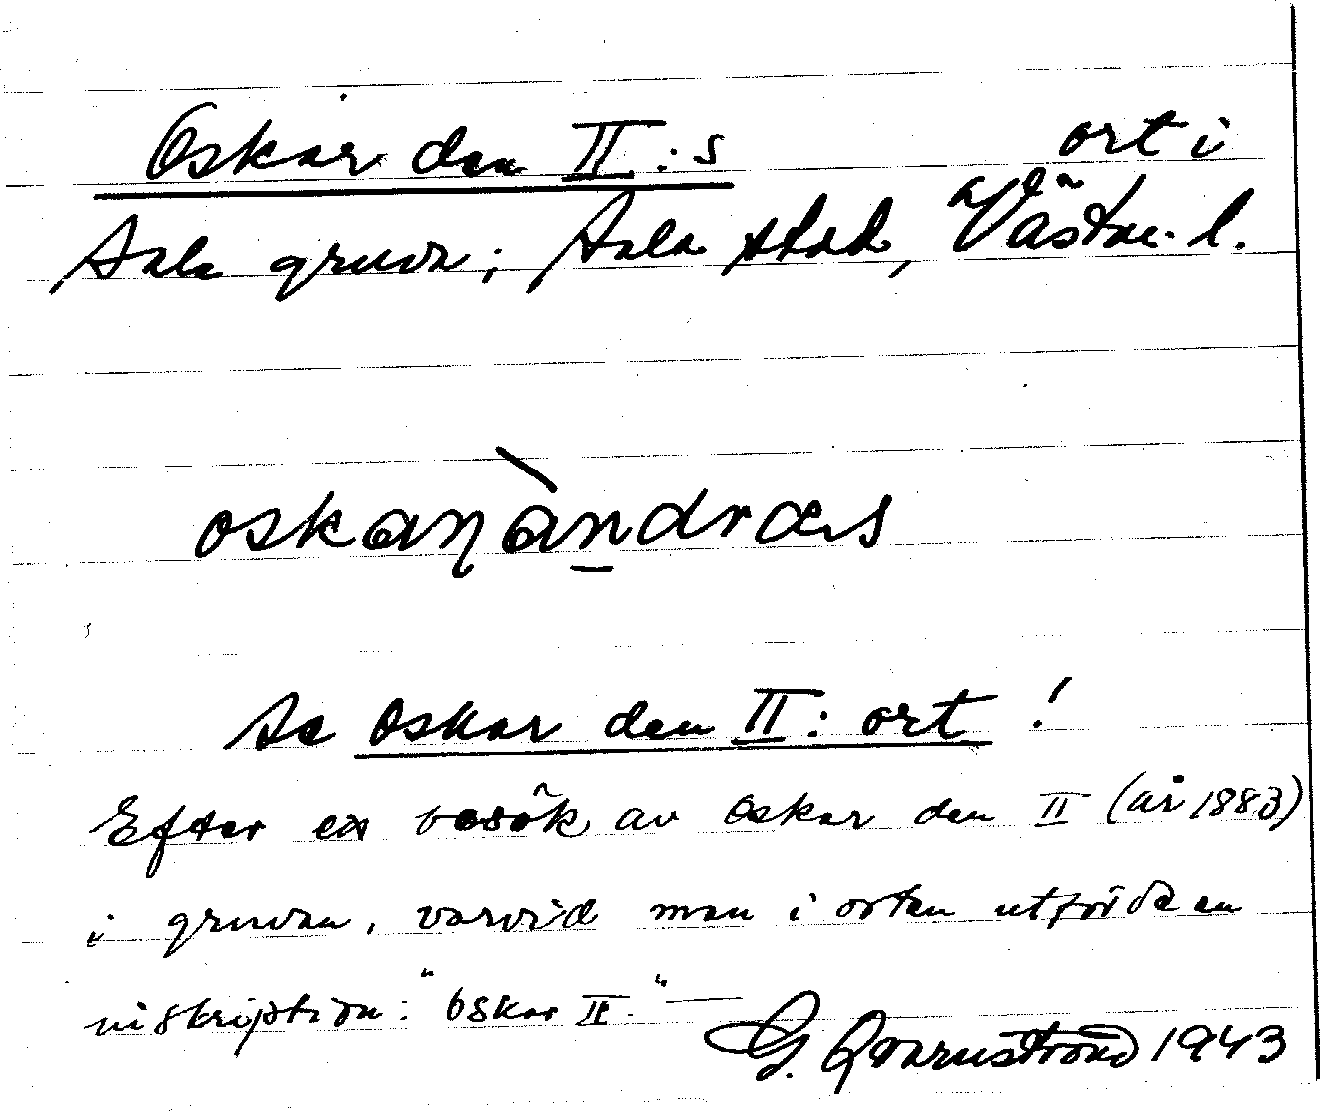 Oskar den II:s ort i
Sala gruva; Sala stad, Västm. l.
oskaɳàndræs
Se Oskar den II: ort!
Efter ett besök av Oskar den II (år 1883)
i gruvan, varvid man i orten utförde en
inskription: "Oskar II." —
G. Qvarnström 1943